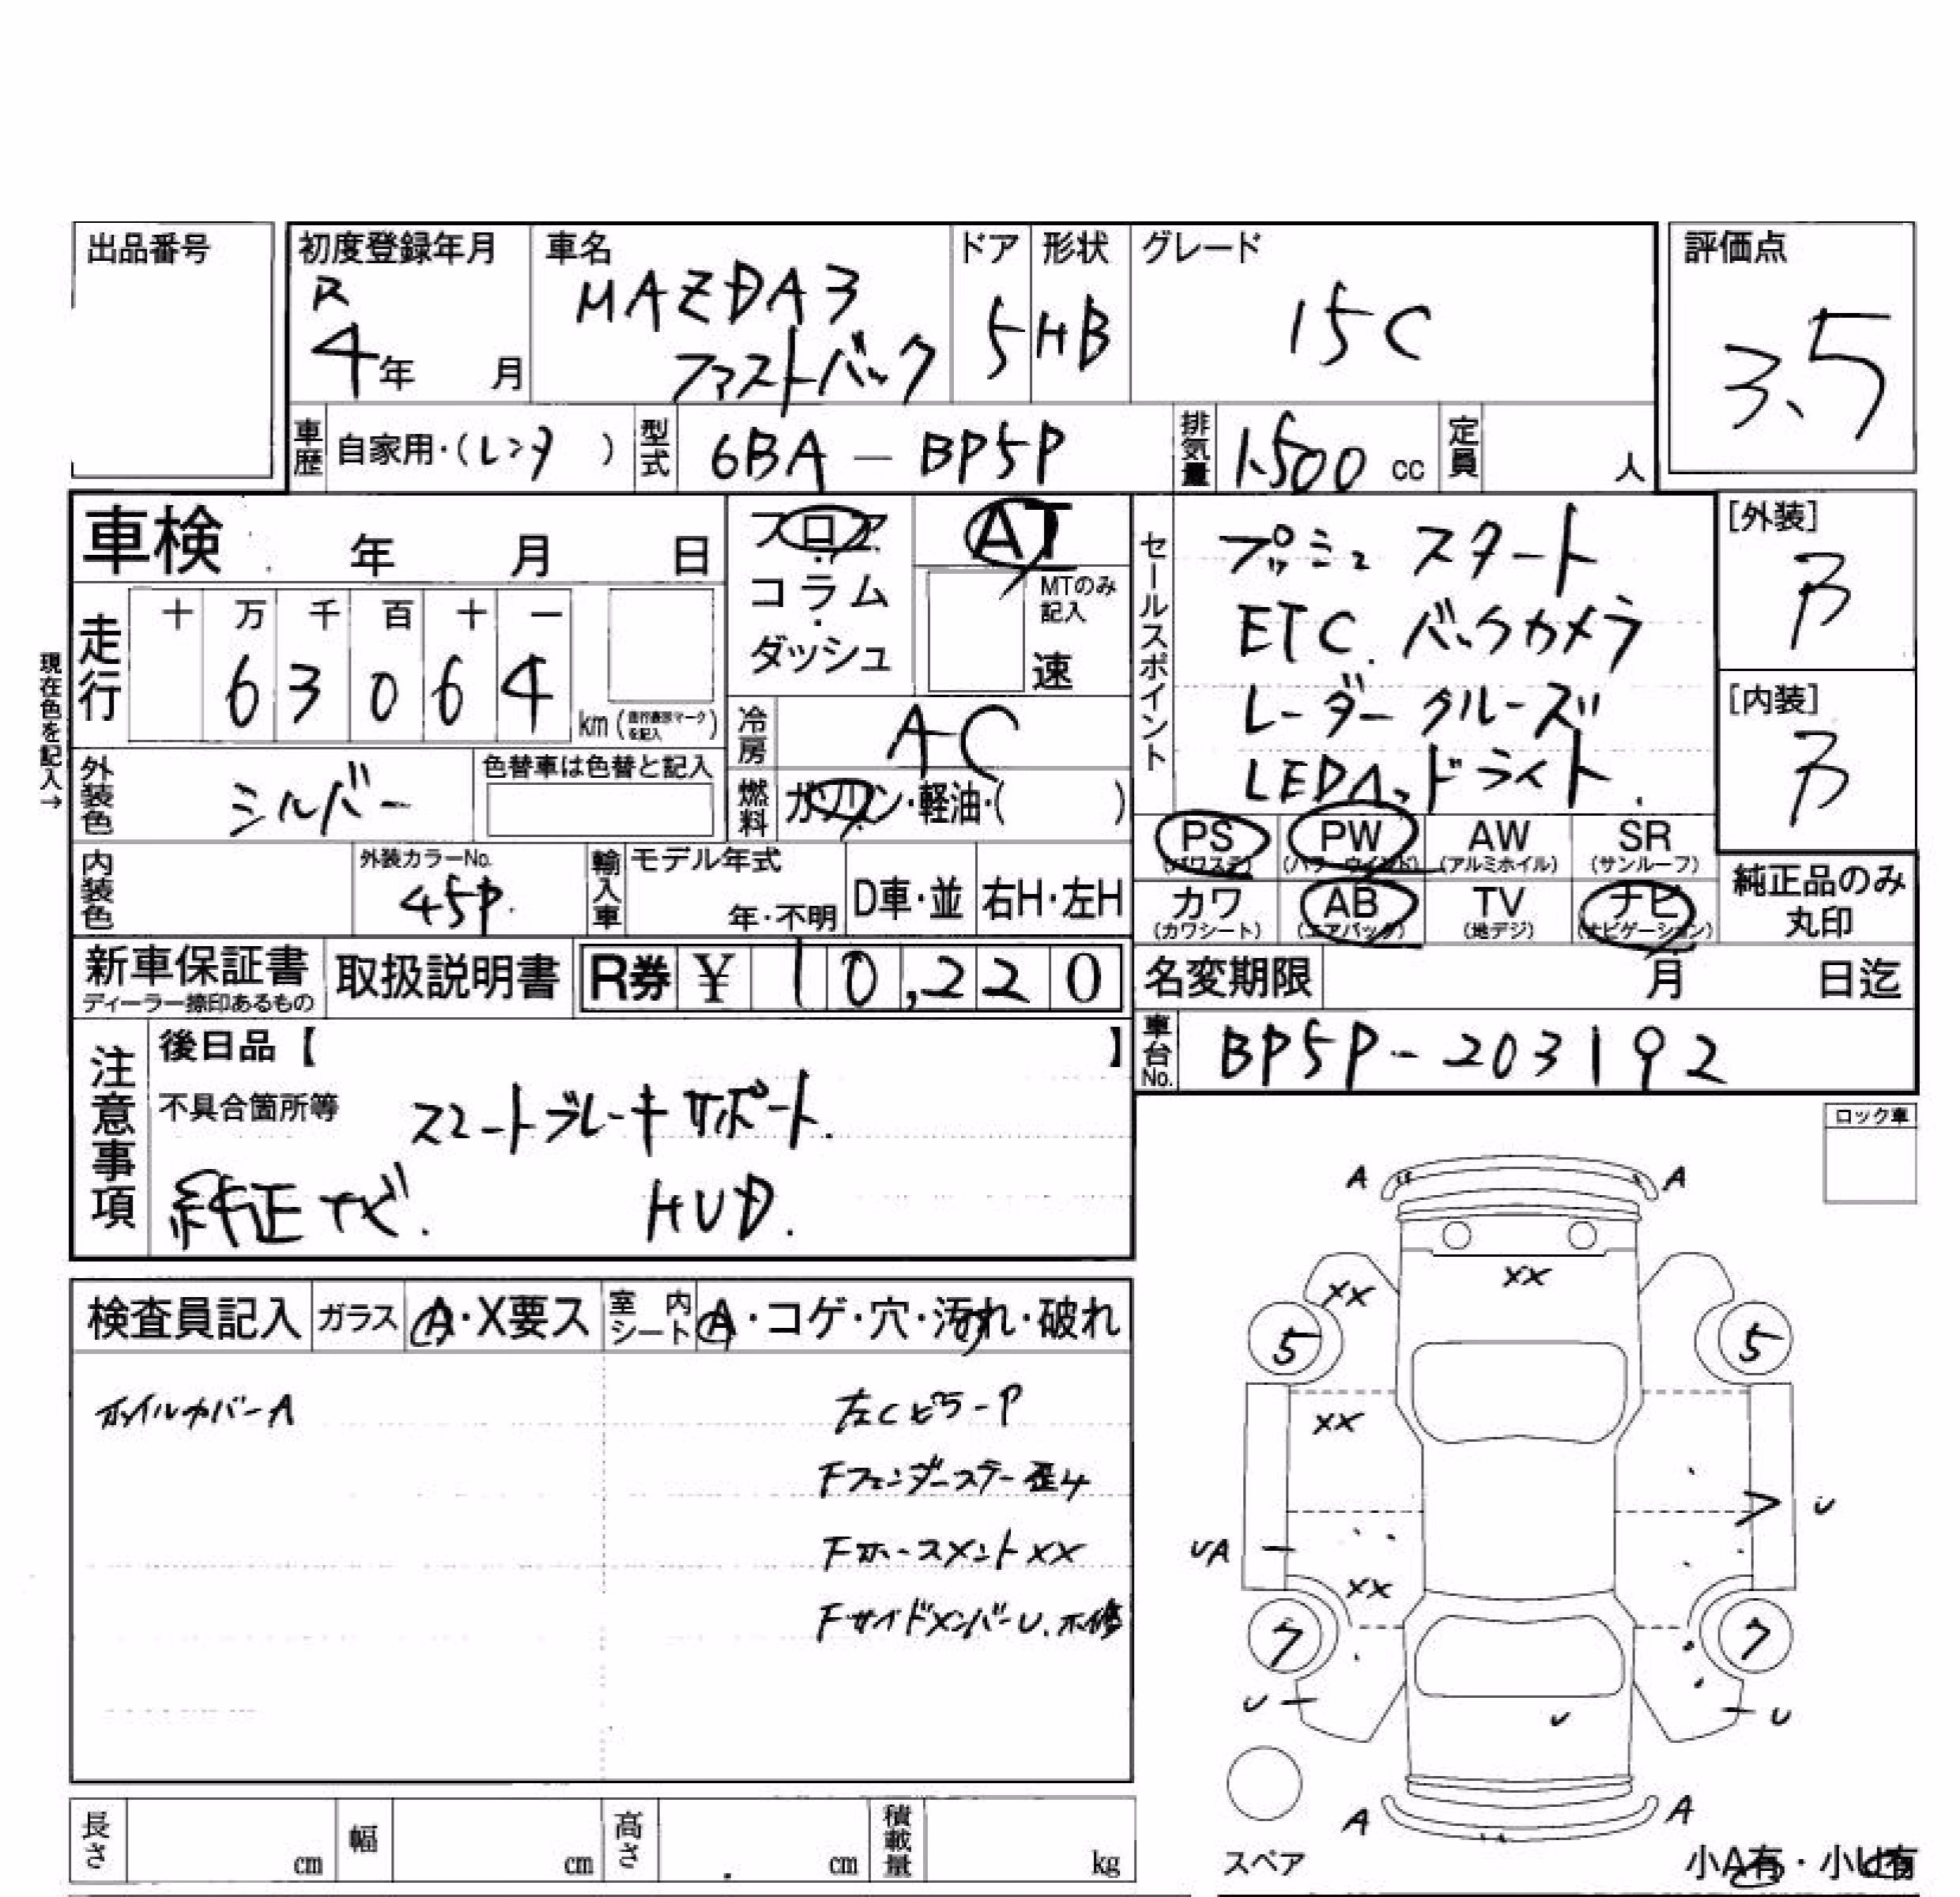 出品番号
初度登録年月 R 4年 月
車名 MAZDA3 ファストバック
ドア 5
形状 HB
グレード 15C
評価点 3.5
車歴 自家用・(レンタ )
型式 6BA-BP5P
排気量 1500 cc
定員 人
車検 年 月 日
フロア・コラム・ダッシュ
AT
MTのみ記入 速
現在色を記入→
走行 十 万 千 百 十 一
6 3 0 6 4 km (走行表示マークを記入)
冷房 AC
外装色 シルバー
色替車は色替と記入
燃料 ガソリン・軽油・( )
内装色
外装カラーNo. 45P.
輸入車 モデル年式 年・不明
D車・並 右H・左H
セールスポイント
プッシュスタート
ETC. バックカメラ
レーダークルーズ
LEDヘッドライト.
[外装] B
[内装] B
PS (パワステ) PW (パワーウインド) AW (アルミホイル) SR (サンルーフ)
カワ (カワシート) AB (エアバック) TV (地デジ) ナビ (ナビゲーション)
純正品のみ丸印
新車保証書 ディーラー捺印あるもの
取扱説明書
R券 ¥ 10,220
名変期限 月 日迄
車台No. BP5P-203192
注意事項
後日品【 】
不具合箇所等 スマートブレーキサポート.
純正ナビ. HUD.
ロック車
検査員記入 ガラス A・X要ス 室内シート A・コゲ・穴・汚れ・破れ
ホイルカバーA
左CピラーP
Fフェンダーステー歪み
FホースメントXX
FサイドメンバーU.未修
A A
XX XX
5 5
XX
U
UA
XX
7 7
U U U
A A
スペア
小A有・小U有
長さ cm 幅 cm 高さ cm 積載量 kg